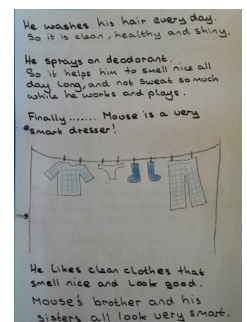 He washes his hair every day.
So it is clean, healthy and shiny.
He sprays on deodorant.
So it helps him to smell nice all
day long, and not sweat so much
while he works and plays.
Finally....... Mouse is a very
smart dresser!
He Likes clean clothes that
smell nice and Look good.
Mouse's brother and his
sisters all look very smart.